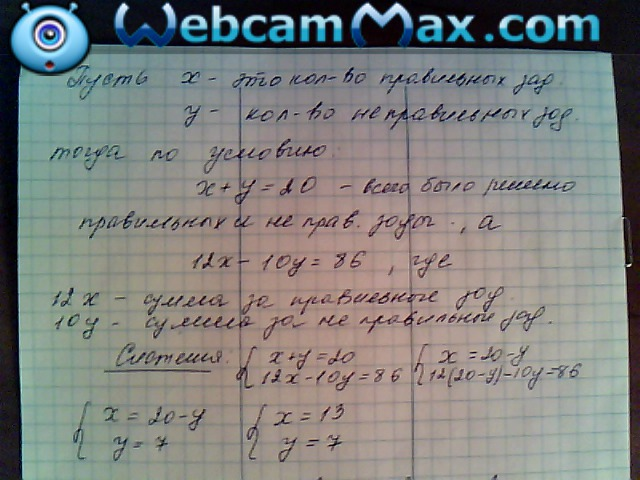 WebcamMax.com
Пусть x - это кол-во правильных зад.
y - кол-во неправильных зад.
тогда по условию:
x+y=20 - всего было решено
правильных и не прав. задач, а
12x-10y=86, где
12x - сумма за правильные зад.
10y - сумма за не правильные зад.
Система: { x+y=20 { x=20-y
12x-10y=86 12(20-y)-10y=86
{ x=20-y { x=13
y=7 y=7